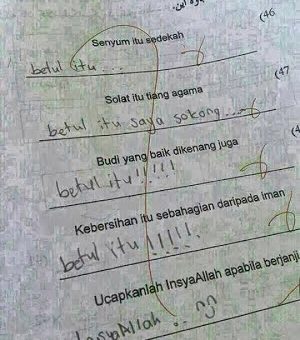 (46
Senyum itu sedekah
betul itu...
(47
Solat itu tiang agama
betul itu saya sokong....
Budi yang baik dikenang juga
betul itu!!!!!
Kebersihan itu sebahagian daripada iman
betul itu!!!!!
Ucapkanlah InsyaAllah apabila berjanji
InsyaAllah ..